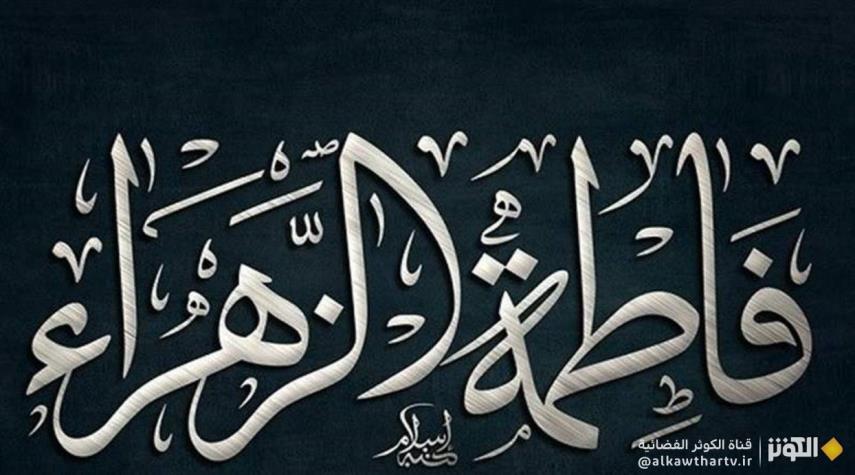 فاطمة الزهراء
قناة الكوثر الفضائية
@alkawthartv.ir
الكوثر